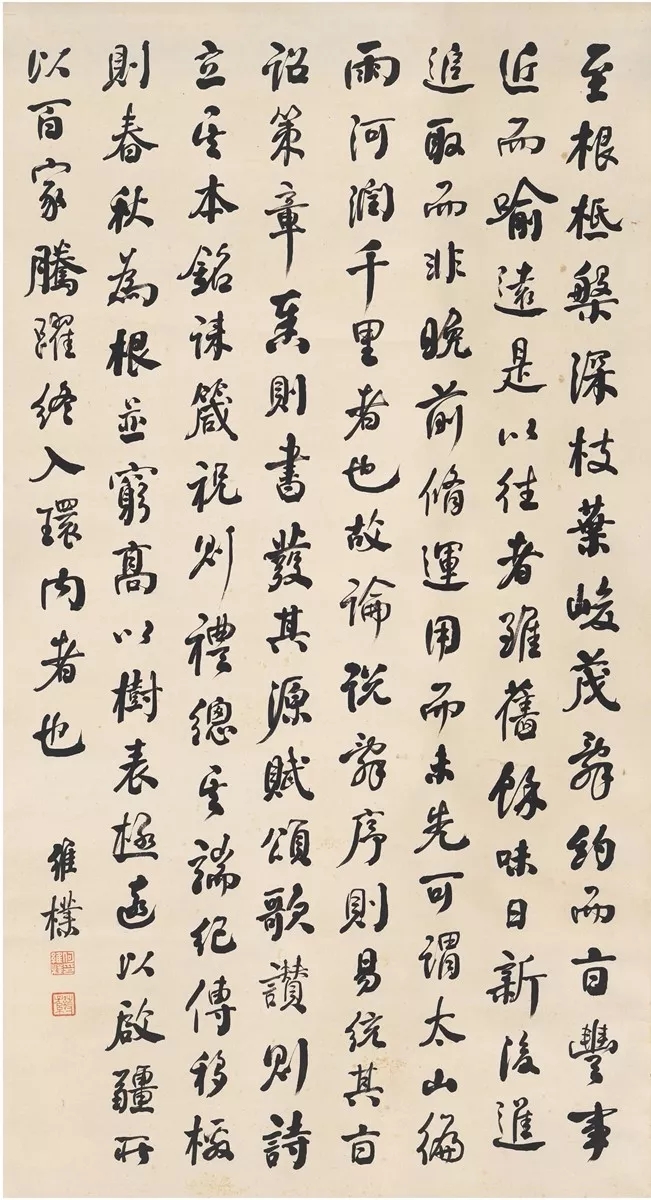 至根柢槃深枝葉峻茂辭約而旨豐事
近而踰遠是以往者雖舊餘味日新後進
追取而非晚前脩運用而未先可謂太山徧
雨河潤千里者也故論說辭序則易統其首
詔策章奏則書發其源賦頌歌讚則詩
立其本銘誄箴祝則禮總其端紀傳移檄
則春秋為根並窮高以樹表極遠以啟疆所
以百家騰躍終入環內者也
維樸